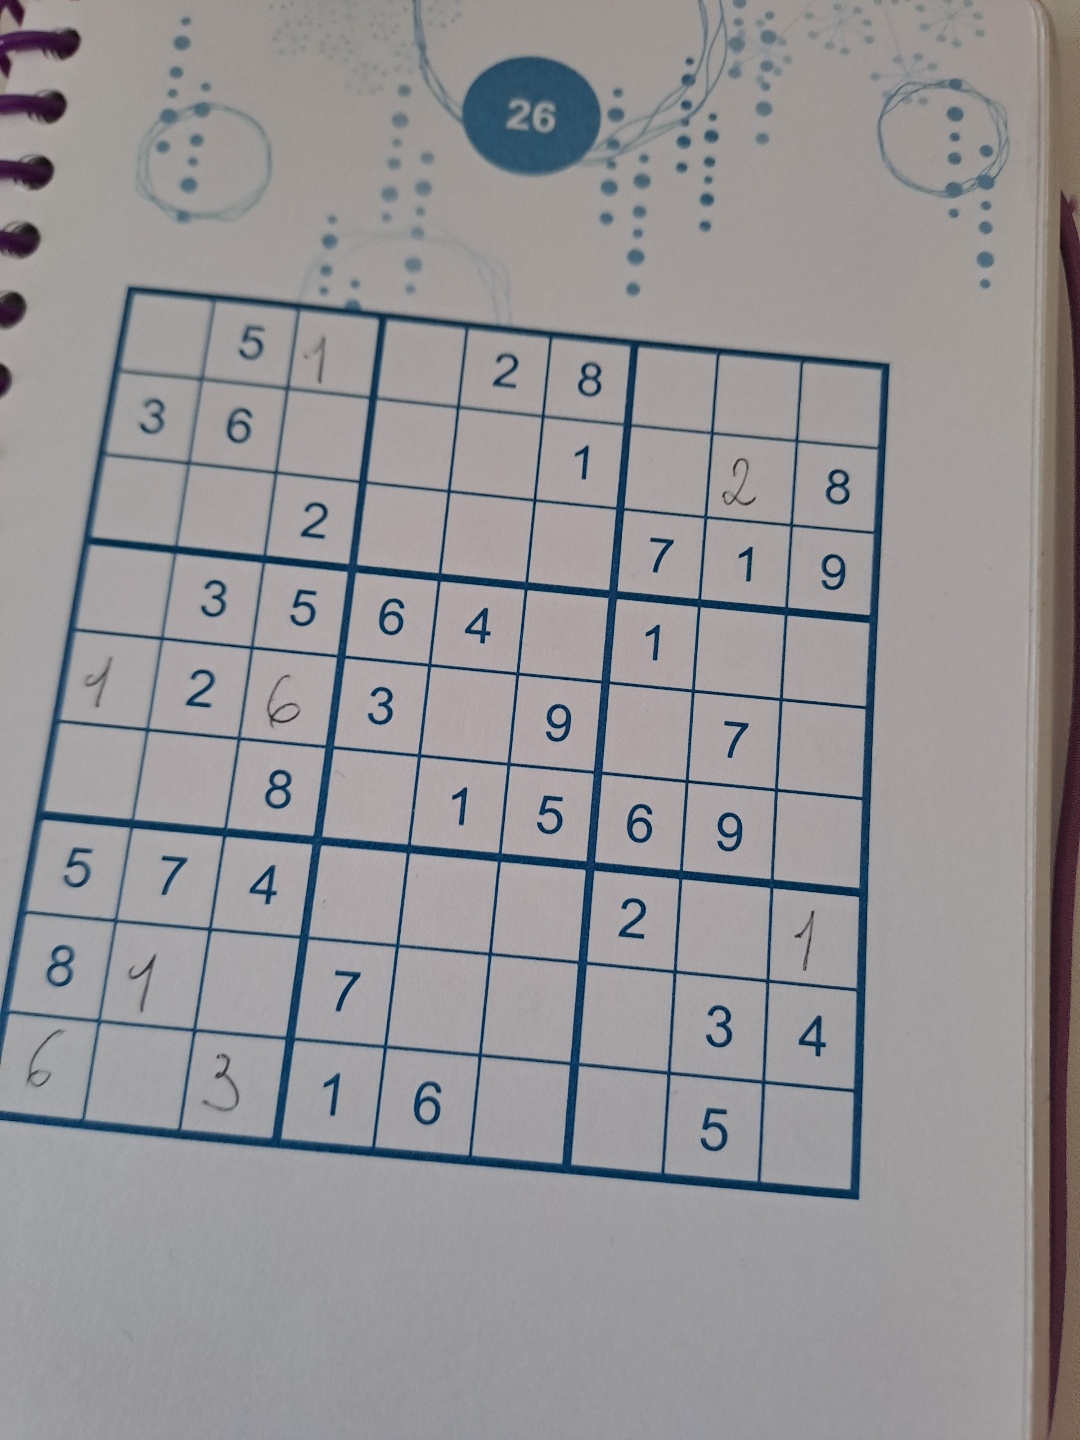 26
5 1 2 8
3 6 1 2 8
2 7 1 9
3 5 6 4 1
1 2 6 3 9 7
8 1 5 6 9
5 7 4 2 1
8 1 7 3 4
6 3 1 6 5